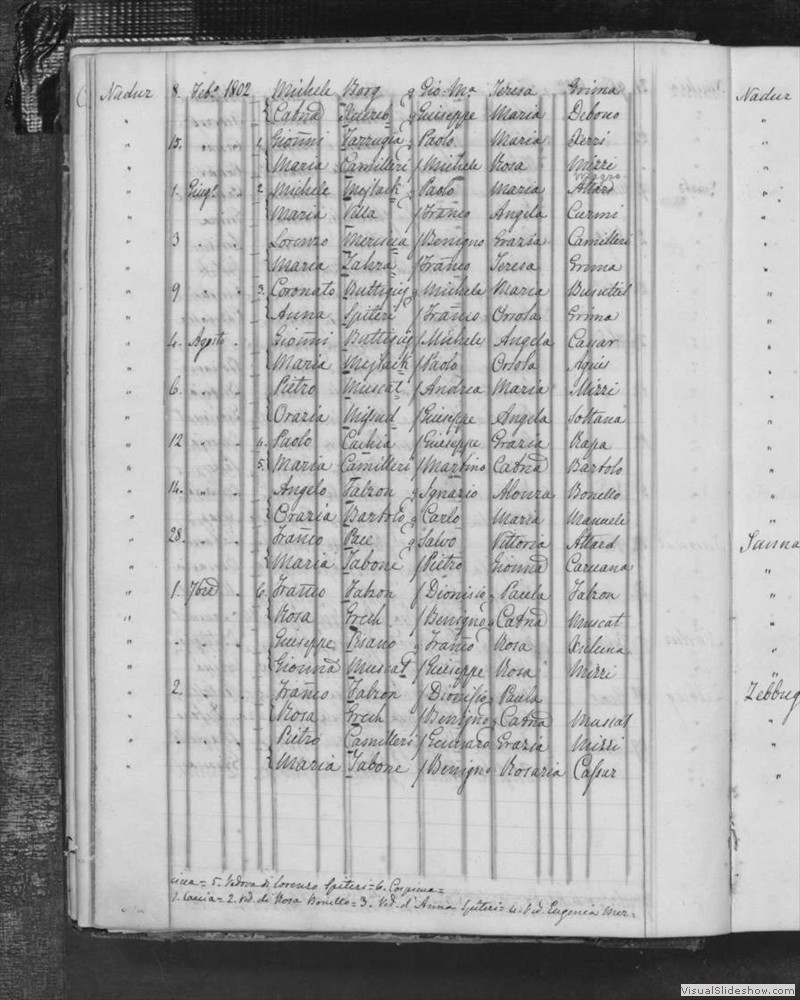 Nadur 8. Feb. 1802 Michele Borg q Gio. Ma Teresa Grima
" Catnd q Giuseppe Maria Debono
" 15. 1. Gionni Farrugia q Paolo Maria Xerri
" Maria Camilleri f Michele Rosa Mizzi
" 1. Giug. 2. Michele Mejlack q Paolo Maria Attard
" Maria Vella f Franco Angela Curmi
" 3 Lorenzo f Benigno Grazia Camilleri
" Maria Zahra f Franco Teresa Grima
" 9 3. Coronato Buttigieg q Michele Maria Busuttil
" Anna Spiteri f Franco Orsola Grima
" 4. Agosto Gionni Buttigieg f Michele Angela Cassar
" Maria Mejlack f Paolo Orsola Agius
" 6. Pietro Muscat f Andrea Maria Mizzi
" Orazia Mifsud f Giuseppe Angela Soltana
" 12 4. Paolo Cachia f Giuseppe Grazia Rapa
" 5. Maria Camilleri f Martino Catnd Bartolo
" 14. Angelo Falzon q Ignazio Alonza Bonello
" Orazia Bartolo q Carlo Maria Manuele
" 28. Franco Pace q Salvo Vittoria Attard
" Maria Tabone f Pietro Gionnd Caruana
" 1. 7bre 6. Franco Falzon f Dionisio Paula Falzon
" Rosa Grech f Benigno Catnd Muscat
" Giuseppe Pisano q Franco Rosa Xiluna
" Gionnd Muscat f Giuseppe Rosa Mizzi
" 2. Franco Falzon f Dionisio Paula
" Rosa Grech f Benigno Catnd Muscat
" Pietro Camilleri f Gennaro Grazia Mizzi
" Maria Tabone f Benigno Rosaria Cassar
= 5. Vedova di Lorenzo Spiteri = 6. Cospicua =
= 2. Ved. di Rosa Bonello = 3. Ved. d'Anna Spiteri = 4. Ved. Eugenia
Nadur
Sanna
Zebbug
VisualSlideshow.com